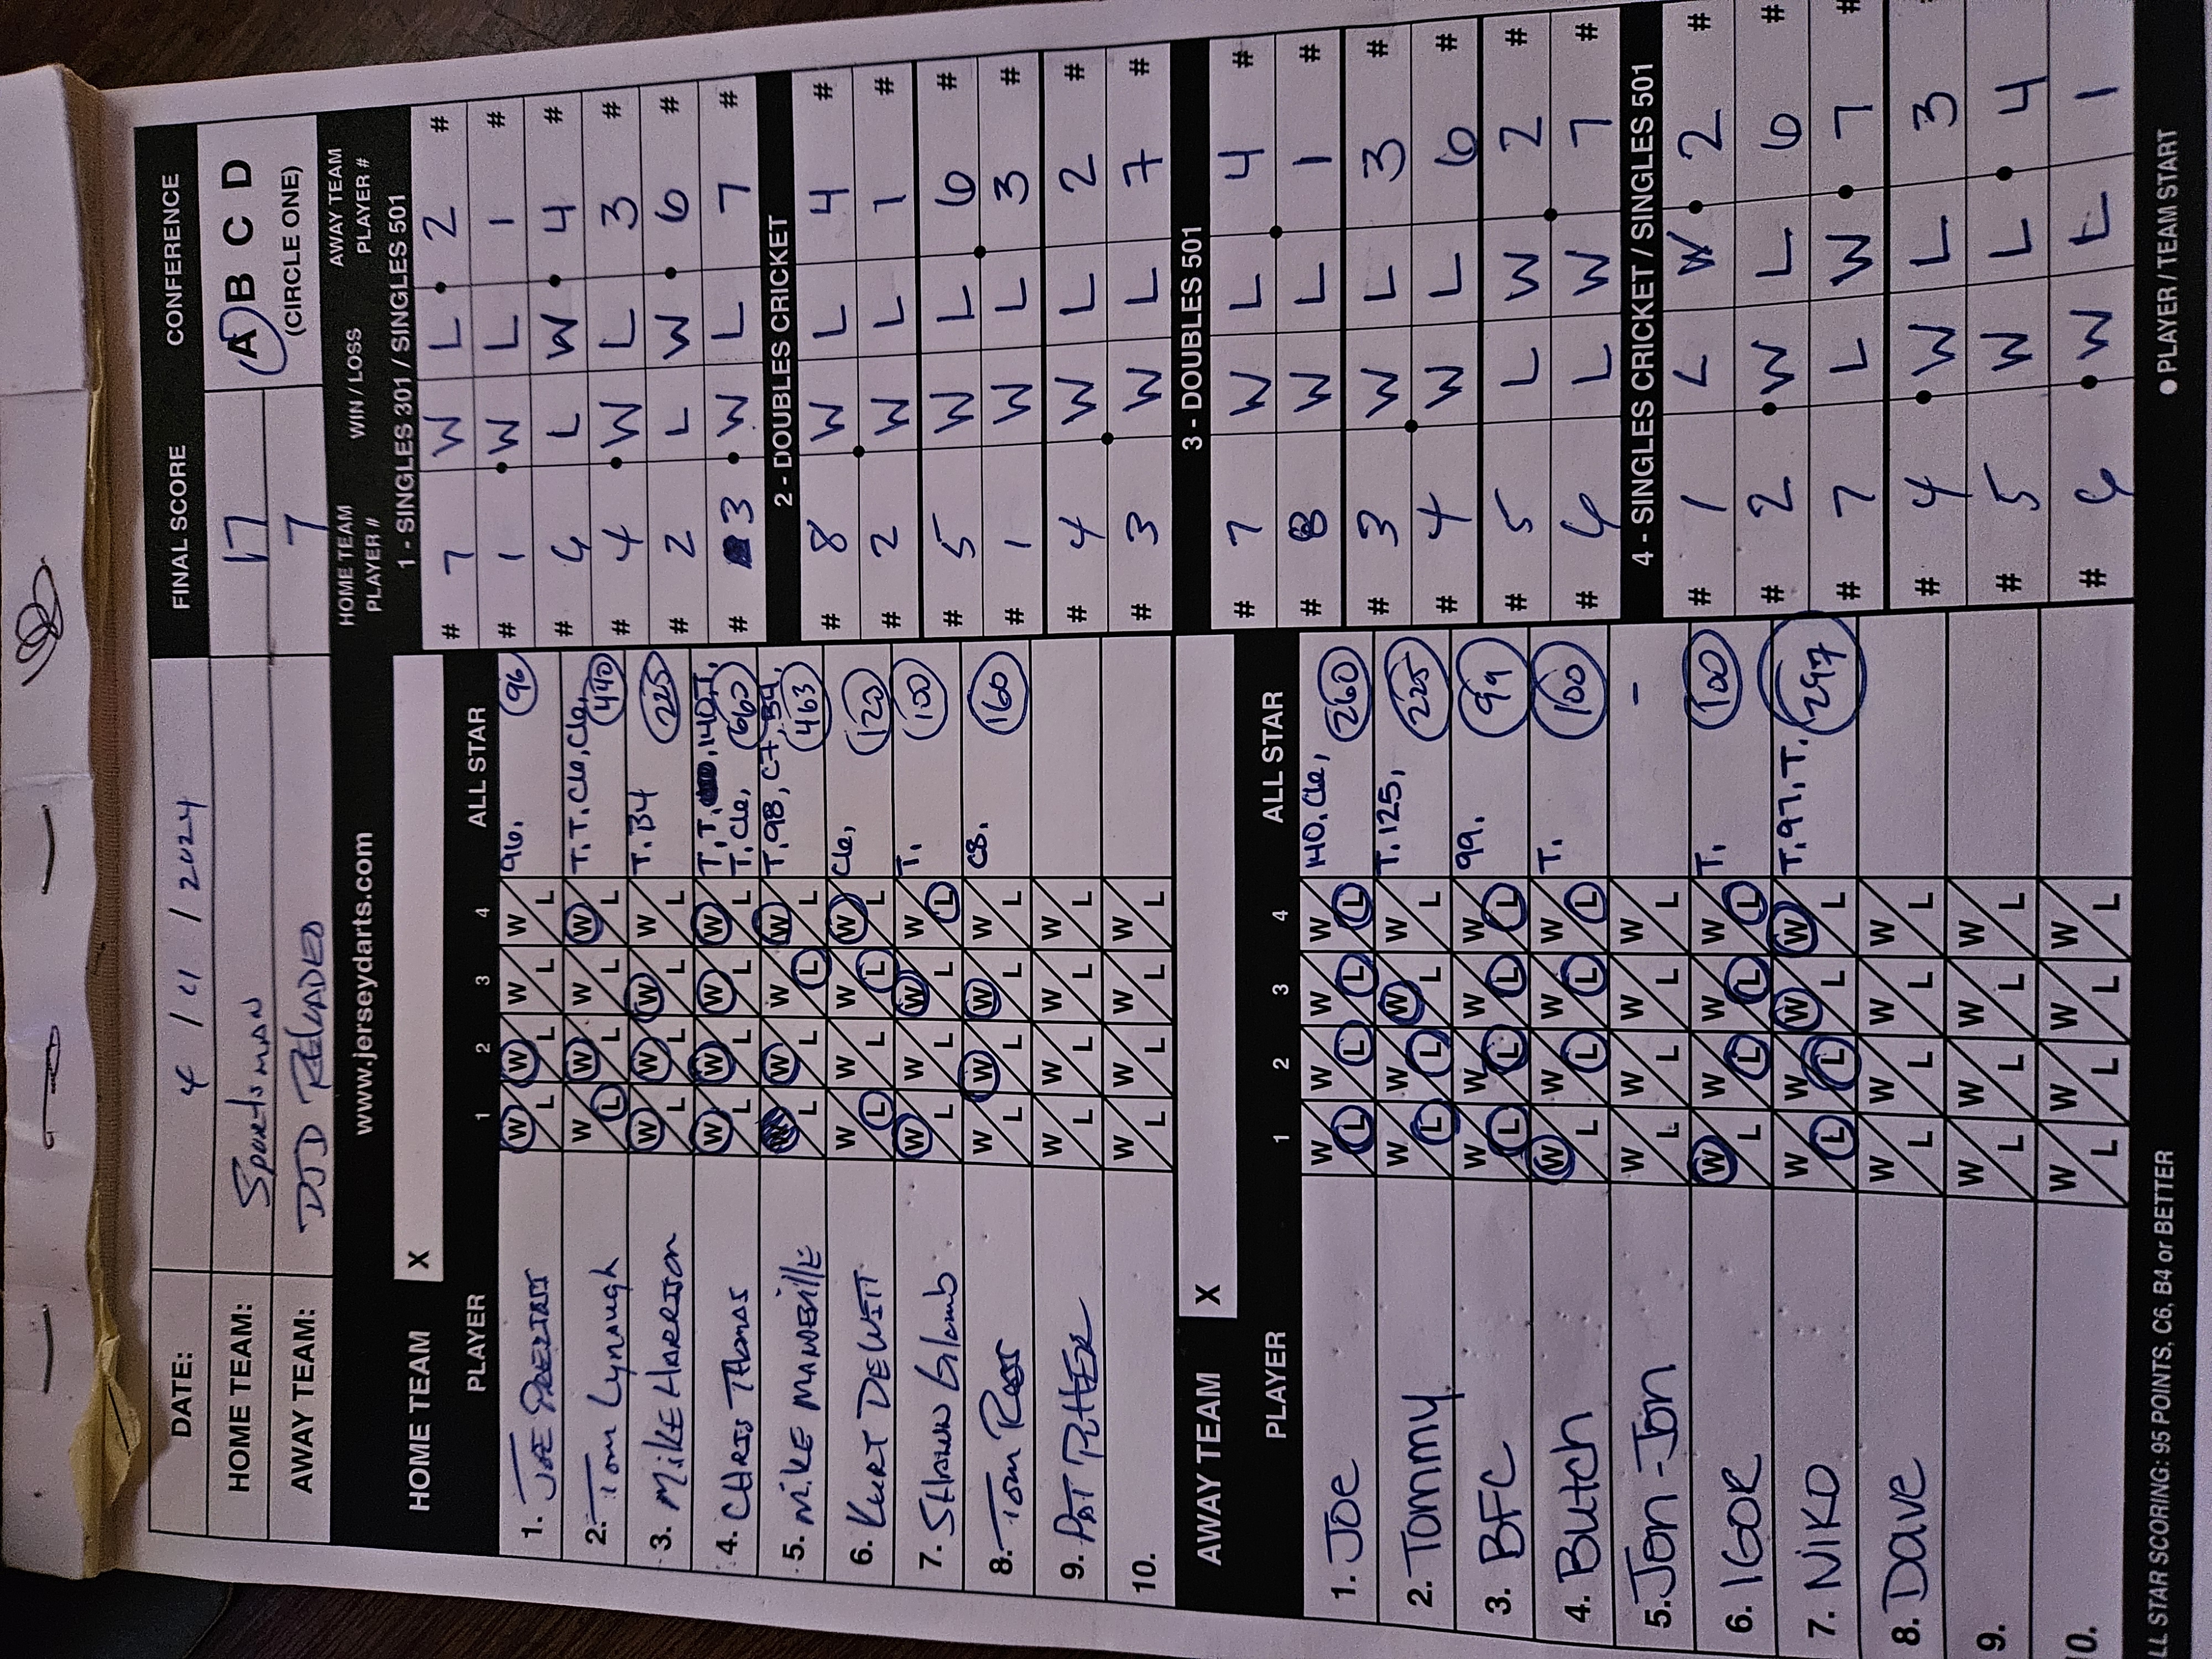 DATE: 4 / 11 / 2024 FINAL SCORE CONFERENCE
HOME TEAM: Sportsman 17 A B C D
AWAY TEAM: DJD RELOADED 7 (CIRCLE ONE)
www.jerseydarts.com
HOME TEAM PLAYER # WIN / LOSS AWAY TEAM PLAYER #
HOME TEAM X
PLAYER 1 2 3 4 ALL STAR
1. JOE W L W L W L W L 96, 96
2. Tom Lynaugh W L W L W L W L T.T.C6,C6, 440
3. MikE HARRISON W L W L W L W L T. B4 225
4. CHRIS THOMAS W L W L W L W L T,T, 140,T, T,C6, 660
5. MikE MANDEVillE W L W L W L T,98, C7, B4, 463
6. KURT DEWITT W L W L W L W L C6, 120
7. SHAWN Glamb W L W L W L W L T, 100
8. Tom Ross W L W L W L W L C8, 160
9. PAT W L W L W L W L
10. W L W L W L W L
AWAY TEAM X
PLAYER 1 2 3 4 ALL STAR
1. JOe W L W L W L W L 140, C6, 260
2. Tommy W L W L W L W L T, 125, 225
3. BFC W L W L W L W L 99, 99
4. Butch W L W L W L W L T, 100
5. Jon-Jon W L W L W L W L -
6. IGOR W L W L W L W L T, 100
7. NIKO W L W L W L W L T, 97, T. 297
8. Dave W L W L W L W L
9. W L W L W L W L
0. W L W L W L W L
LL STAR SCORING: 95 POINTS, C6, B4 or BETTER
1 - SINGLES 301 / SINGLES 501
# 7 W L 2 #
# 1 W L 1 #
# 6 L W 4 #
# 4 W L 3 #
# 2 L W 6 #
# 3 W L 7 #
2 - DOUBLES CRICKET
# 8 W L 4 #
# 2 W L 1 #
# 5 W L 6 #
# 1 W L 3 #
# 4 W L 2 #
# 3 W L 7 #
3 - DOUBLES 501
# 7 W L 4 #
# 8 W L 1 #
# 3 W L 3 #
# 4 W L 6 #
# 5 L W 2 #
# 6 L W 7 #
4 - SINGLES CRICKET / SINGLES 501
# 1 L W 2 #
# 2 W L 6 #
# 7 L W 7 #
# 4 W L 3
# 5 W L 4
# 6 W L 1
● PLAYER / TEAM START